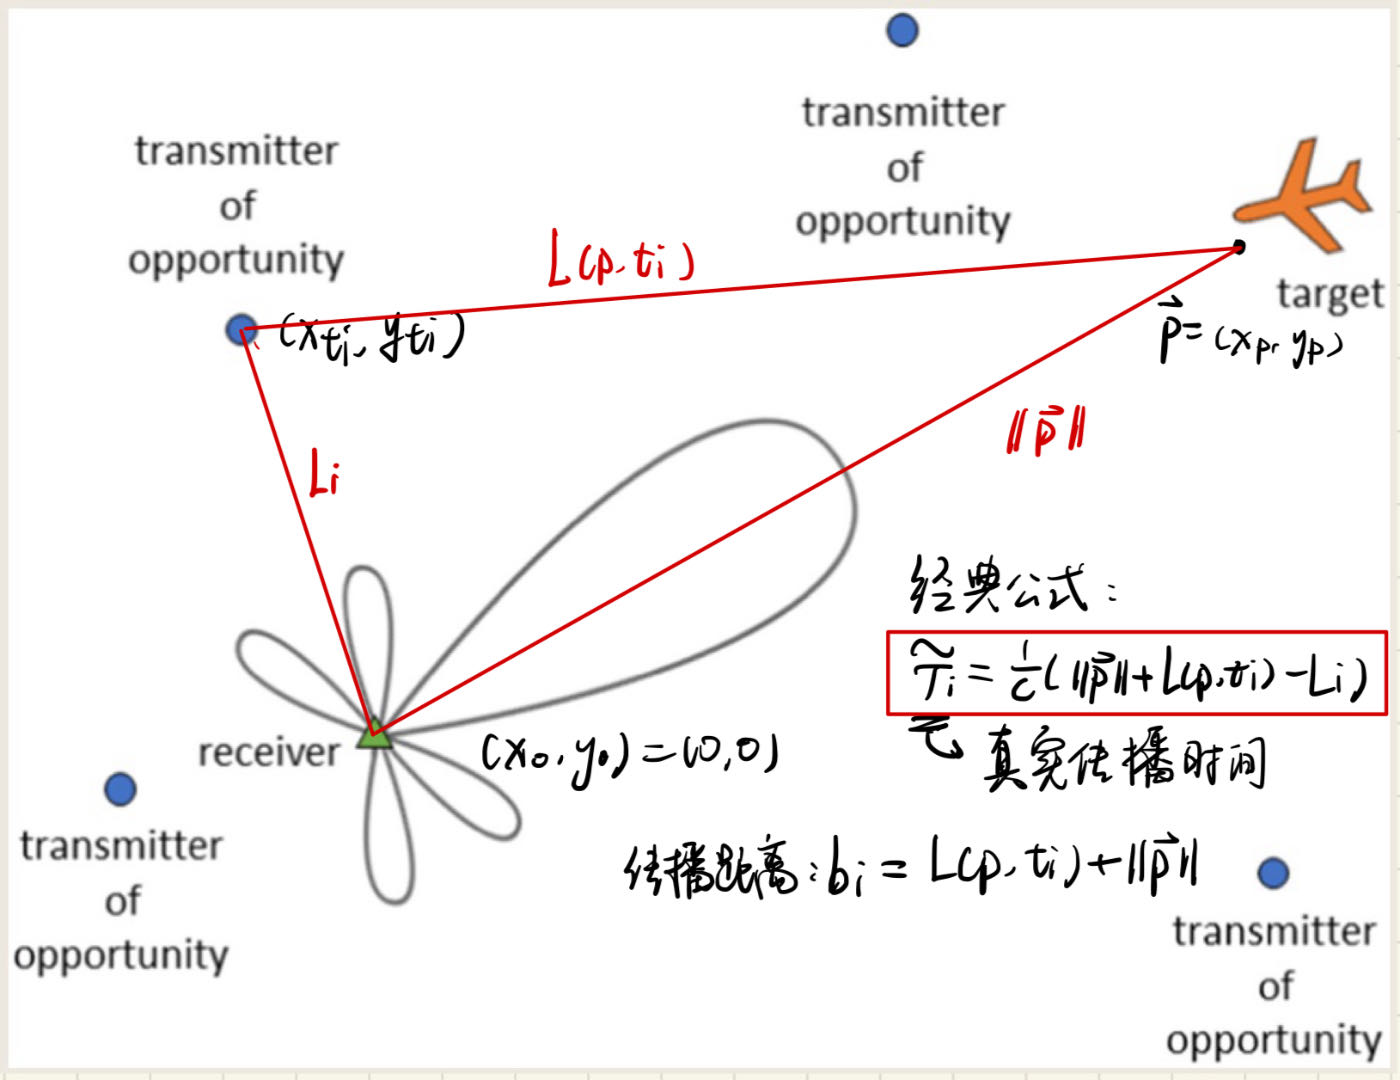 transmitter
of
opportunity
transmitter
of
opportunity
L(p, ti)
target
(xti, yti)
p⃗ = (xp, yp)
‖p⃗‖
Li
经典公式:
T̃i = 1/c (‖p⃗‖ + L(p, ti) - Li)
receiver
(x0, y0) = (0, 0)
真实传播时间
transmitter
of
opportunity
传播距离: bi = L(p, ti) + ‖p⃗‖
transmitter
of
opportunity